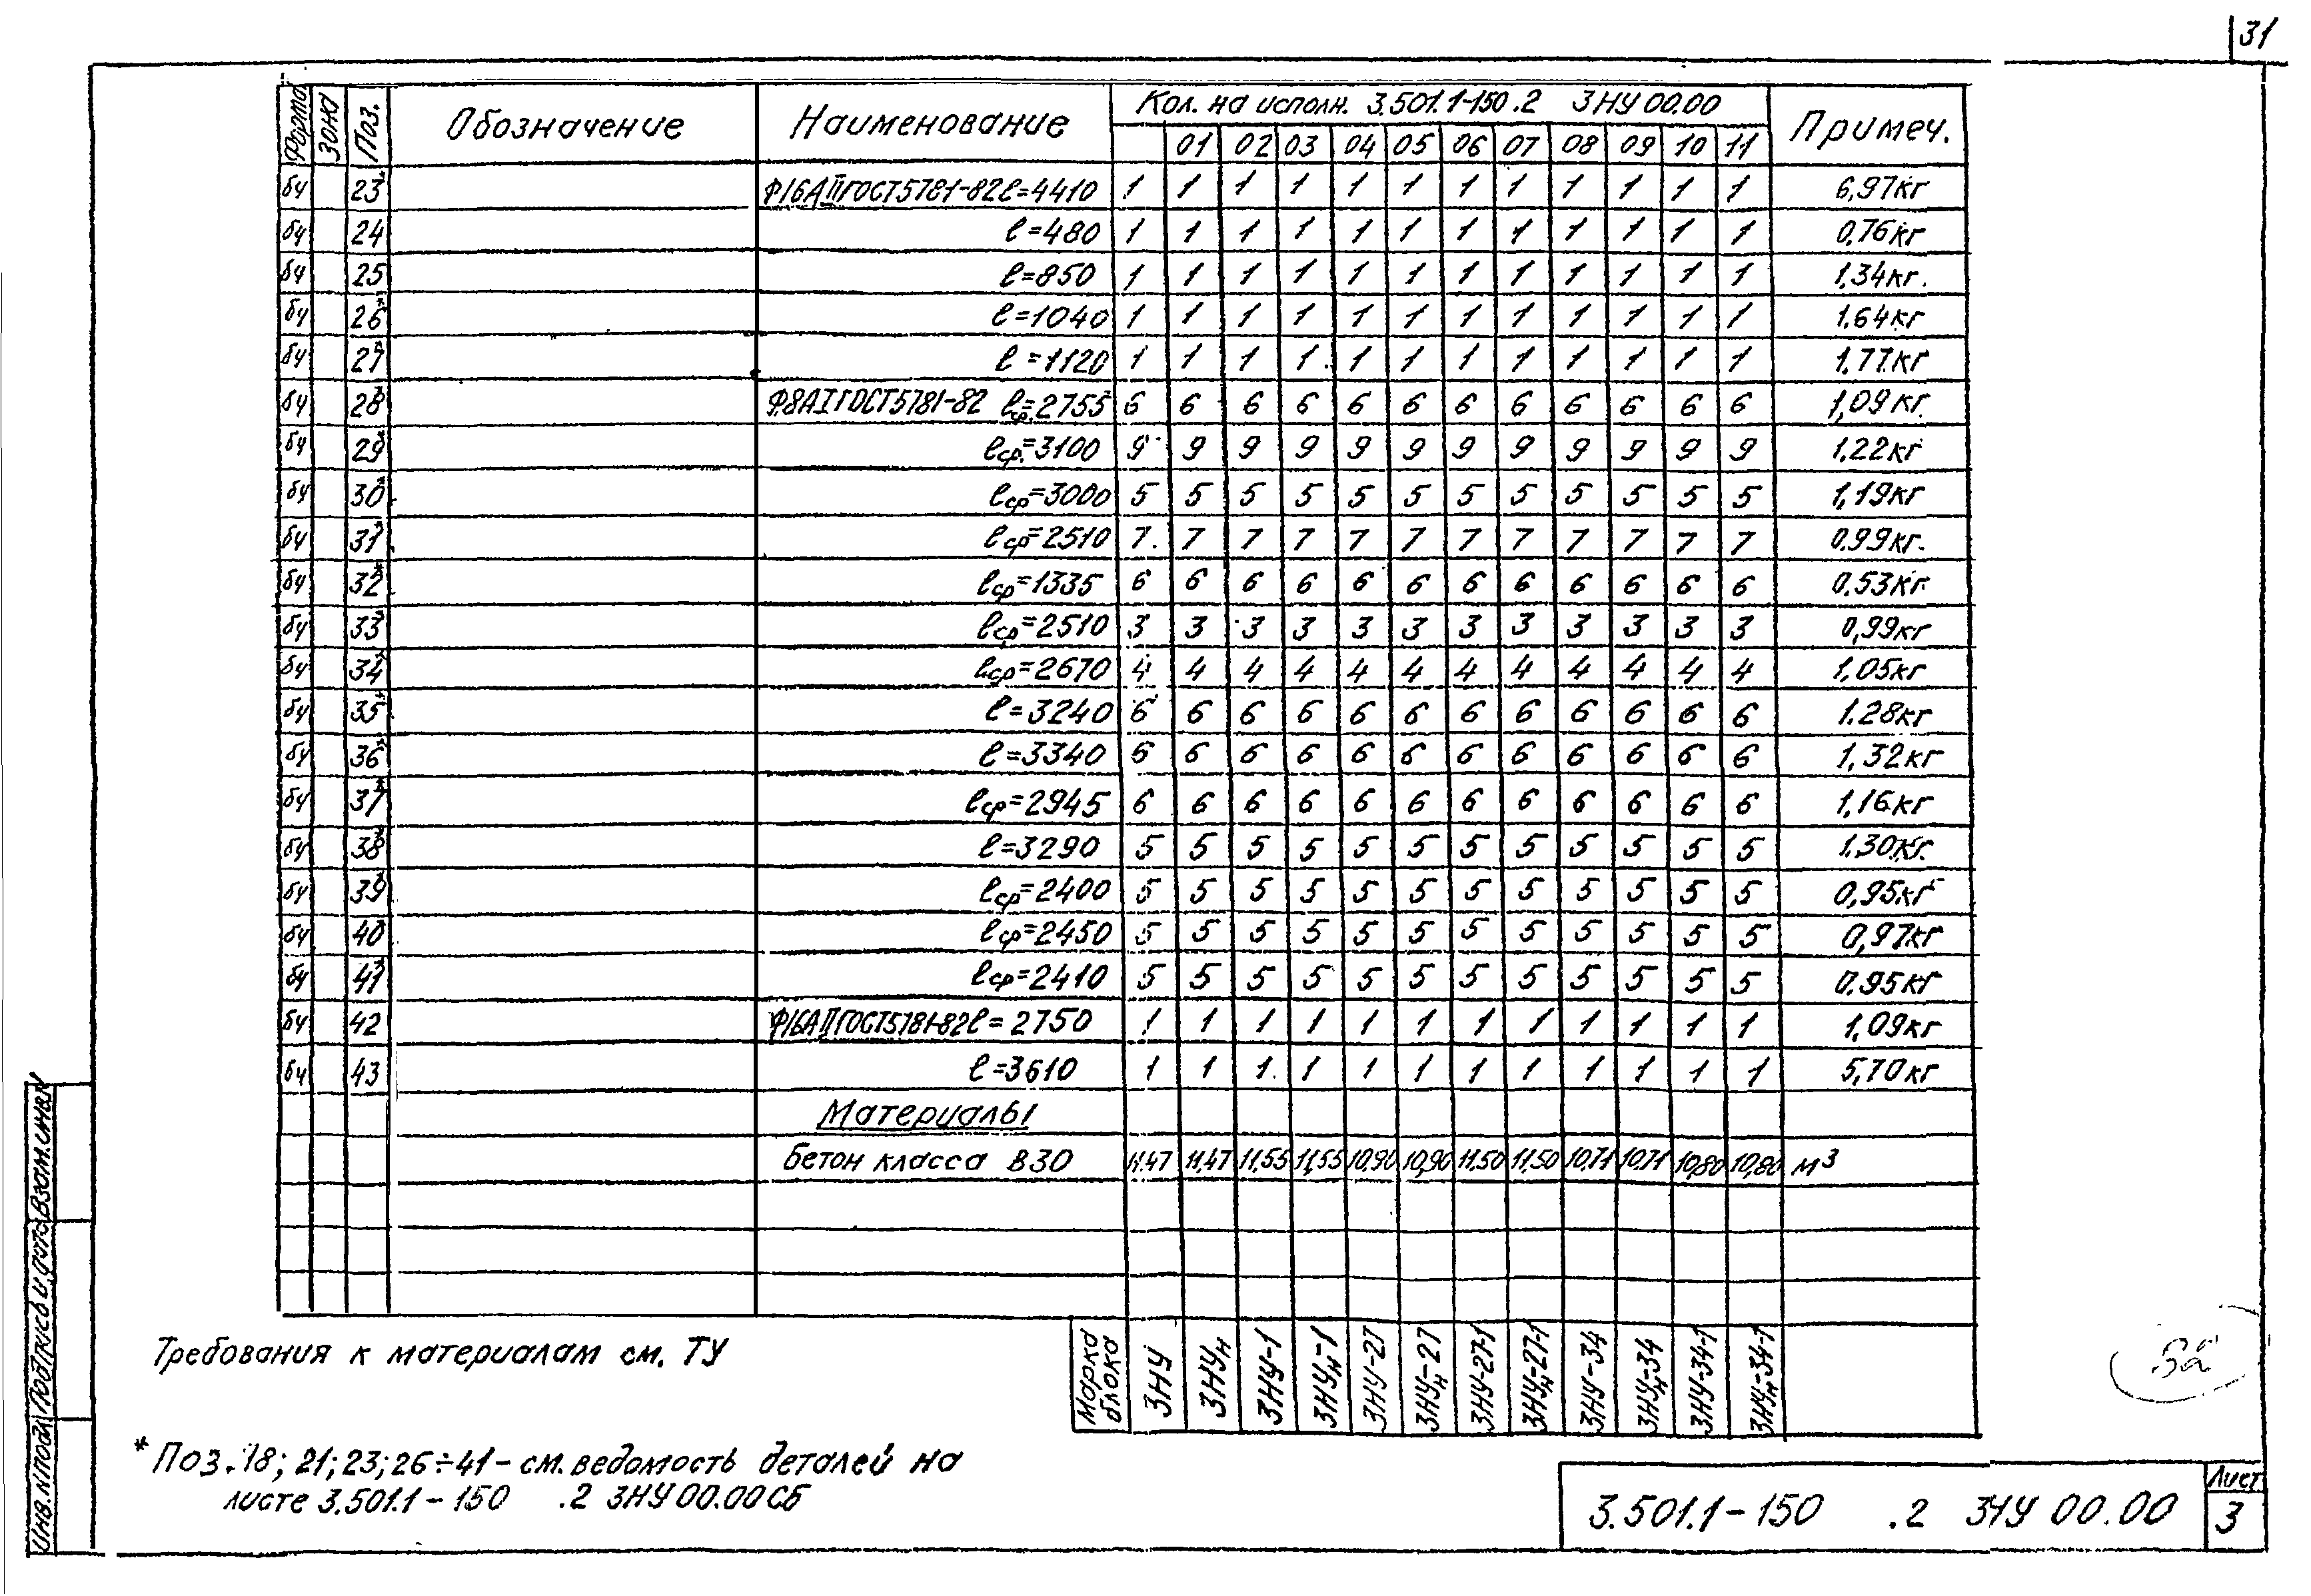 31
Форма Зона Поз. Обозначение Наименование Кол. на исполн. 3.501.1-150.2 3НУ 00.00 Примеч.
01 02 03 04 05 06 07 08 09 10 11
бч 23* Ф16АIIГОСТ5781-82 ℓ=4410 1 1 1 1 1 1 1 1 1 1 1 1 6,97кг
бч 24 ℓ=480 1 1 1 1 1 1 1 1 1 1 1 1 0,76кг
бч 25 ℓ=850 1 1 1 1 1 1 1 1 1 1 1 1 1,34кг.
бч 26* ℓ=1040 1 1 1 1 1 1 1 1 1 1 1 1 1.64кг
бч 27* ℓ=1120 1 1 1 1 1 1 1 1 1 1 1 1 1,77кг
бч 28* Ф8АIГОСТ5781-82 ℓср=2755 6 6 6 6 6 6 6 6 6 6 6 6 1,09кг.
бч 29* ℓср.=3100 9 9 9 9 9 9 9 9 9 9 9 9 1.22кг
бч 30* ℓср=3000 5 5 5 5 5 5 5 5 5 5 5 5 1,19кг
бч 31* ℓср=2510 7 7 7 7 7 7 7 7 7 7 7 7 0.99кг.
бч 32* ℓср=1335 6 6 6 6 6 6 6 6 6 6 6 6 0,53кг.
бч 33* ℓср=2510 3 3 3 3 3 3 3 3 3 3 3 3 0,99кг
бч 34* ℓср=2670 4 4 4 4 4 4 4 4 4 4 4 4 1,05кг
бч 35* ℓ=3240 6 6 6 6 6 6 6 6 6 6 6 6 1.28кг
бч 36* ℓ=3340 6 6 6 6 6 6 6 6 6 6 6 6 1,32кг
бч 37* ℓср=2945 6 6 6 6 6 6 6 6 6 6 6 6 1,16кг
бч 38* ℓ=3290 5 5 5 5 5 5 5 5 5 5 5 5 1.30кг.
бч 39* ℓср=2400 5 5 5 5 5 5 5 5 5 5 5 5 0,95кг
бч 40* ℓср=2450 5 5 5 5 5 5 5 5 5 5 5 5 0,97кг
бч 41* ℓср=2410 5 5 5 5 5 5 5 5 5 5 5 5 0.95кг
бч 42 Ф16АIIГОСТ5781-82 ℓ=2750 1 1 1 1 1 1 1 1 1 1 1 1 1,09кг
бч 43 ℓ=3610 1 1 1 1 1 1 1 1 1 1 1 1 5,70кг
Материалы
бетон класса В30 11.47 11,47 11,55 11,55 10,90 10,90 11.50 11,50 10,71 10,71 10,80 10,80 м³
Марка блока 3НУ 3НУн 3НУ-1 3НУн-1 3НУ-27 3НУн-27 3НУ-27-1 3НУн-27-1 3НУ-34 3НУн-34 3НУ-34-1 3НУн-34-1
Требования к материалам см. ТУ
* Поз. 18; 21; 23; 26÷41 - см. ведомость деталей на
листе 3.501.1-150 .2 3НУ 00.00СБ
Инв.№подл. Подпись и дата Взам.инв.№
3.501.1-150 .2 3НУ 00.00
Лист
3